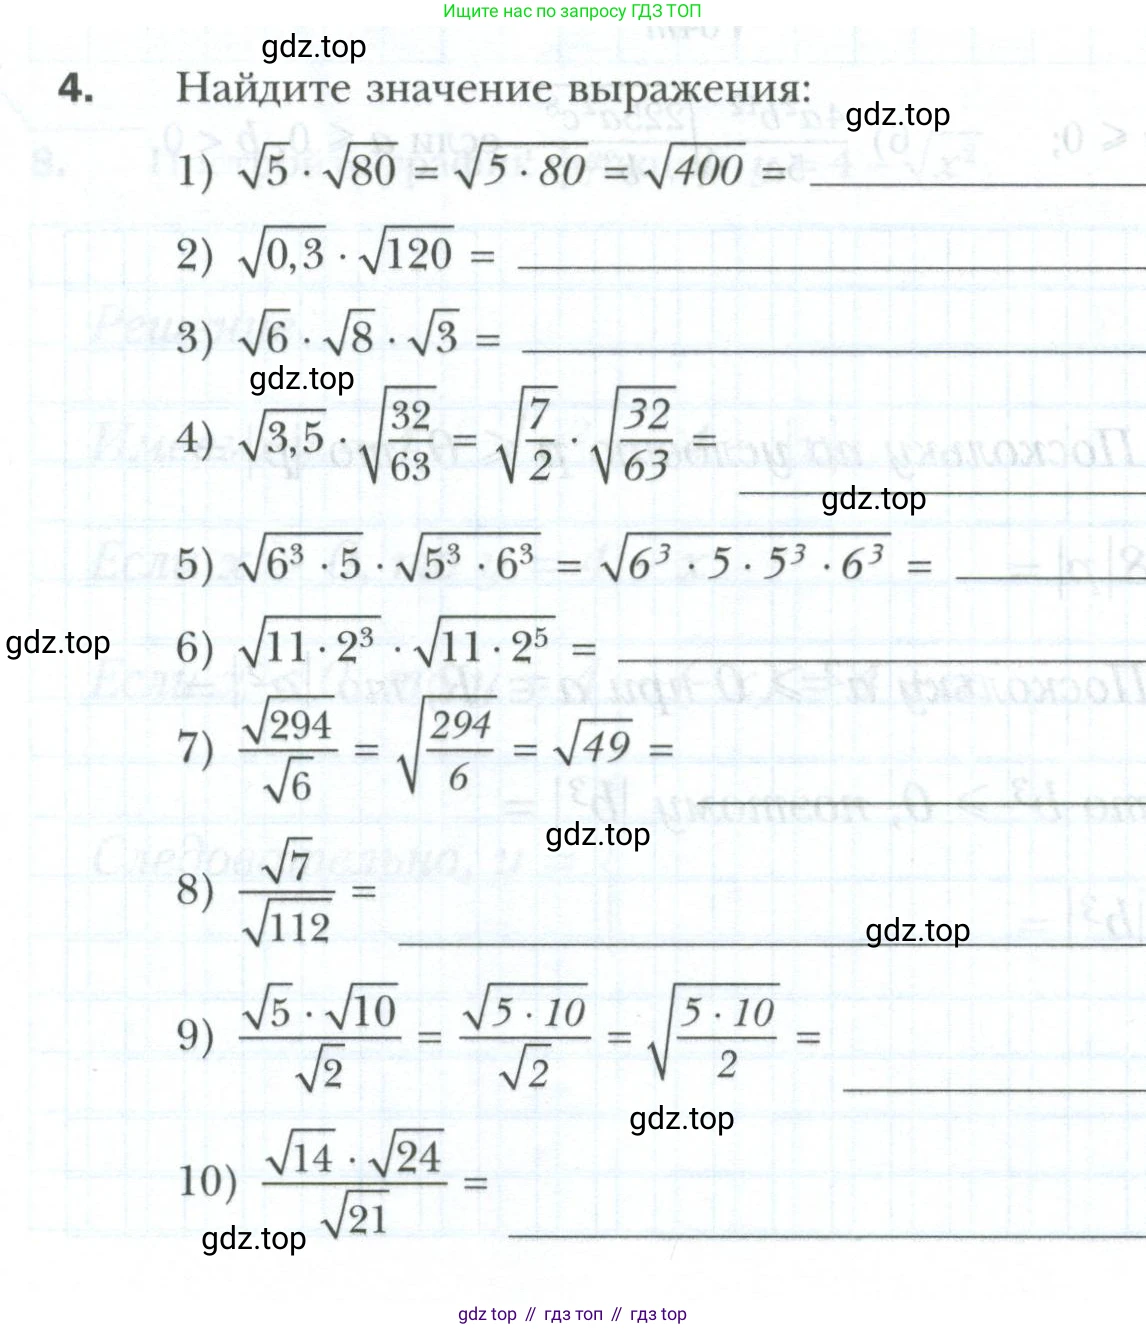 Ищите нас по запросу ГДЗ ТОП
gdz.top
4. Найдите значение выражения:
gdz.top
1) √5 · √80 = √(5 · 80) = √400 =
2) √0,3 · √120 =
3) √6 · √8 · √3 =
gdz.top
4) √3,5 · √(32/63) = √(7/2) · √(32/63) =
gdz.top
5) √(6³ · 5) · √(5³ · 6³) = √(6³ · 5 · 5³ · 6³) =
gdz.top
6) √(11 · 2³) · √(11 · 2⁵) =
7) √294/√6 = √(294/6) = √49 =
gdz.top
8) √7/√112 =
gdz.top
9) (√5 · √10)/√2 = √(5 · 10)/√2 = √((5 · 10)/2) =
gdz.top
10) (√14 · √24)/√21 =
gdz.top
gdz top // гдз топ // gdz top